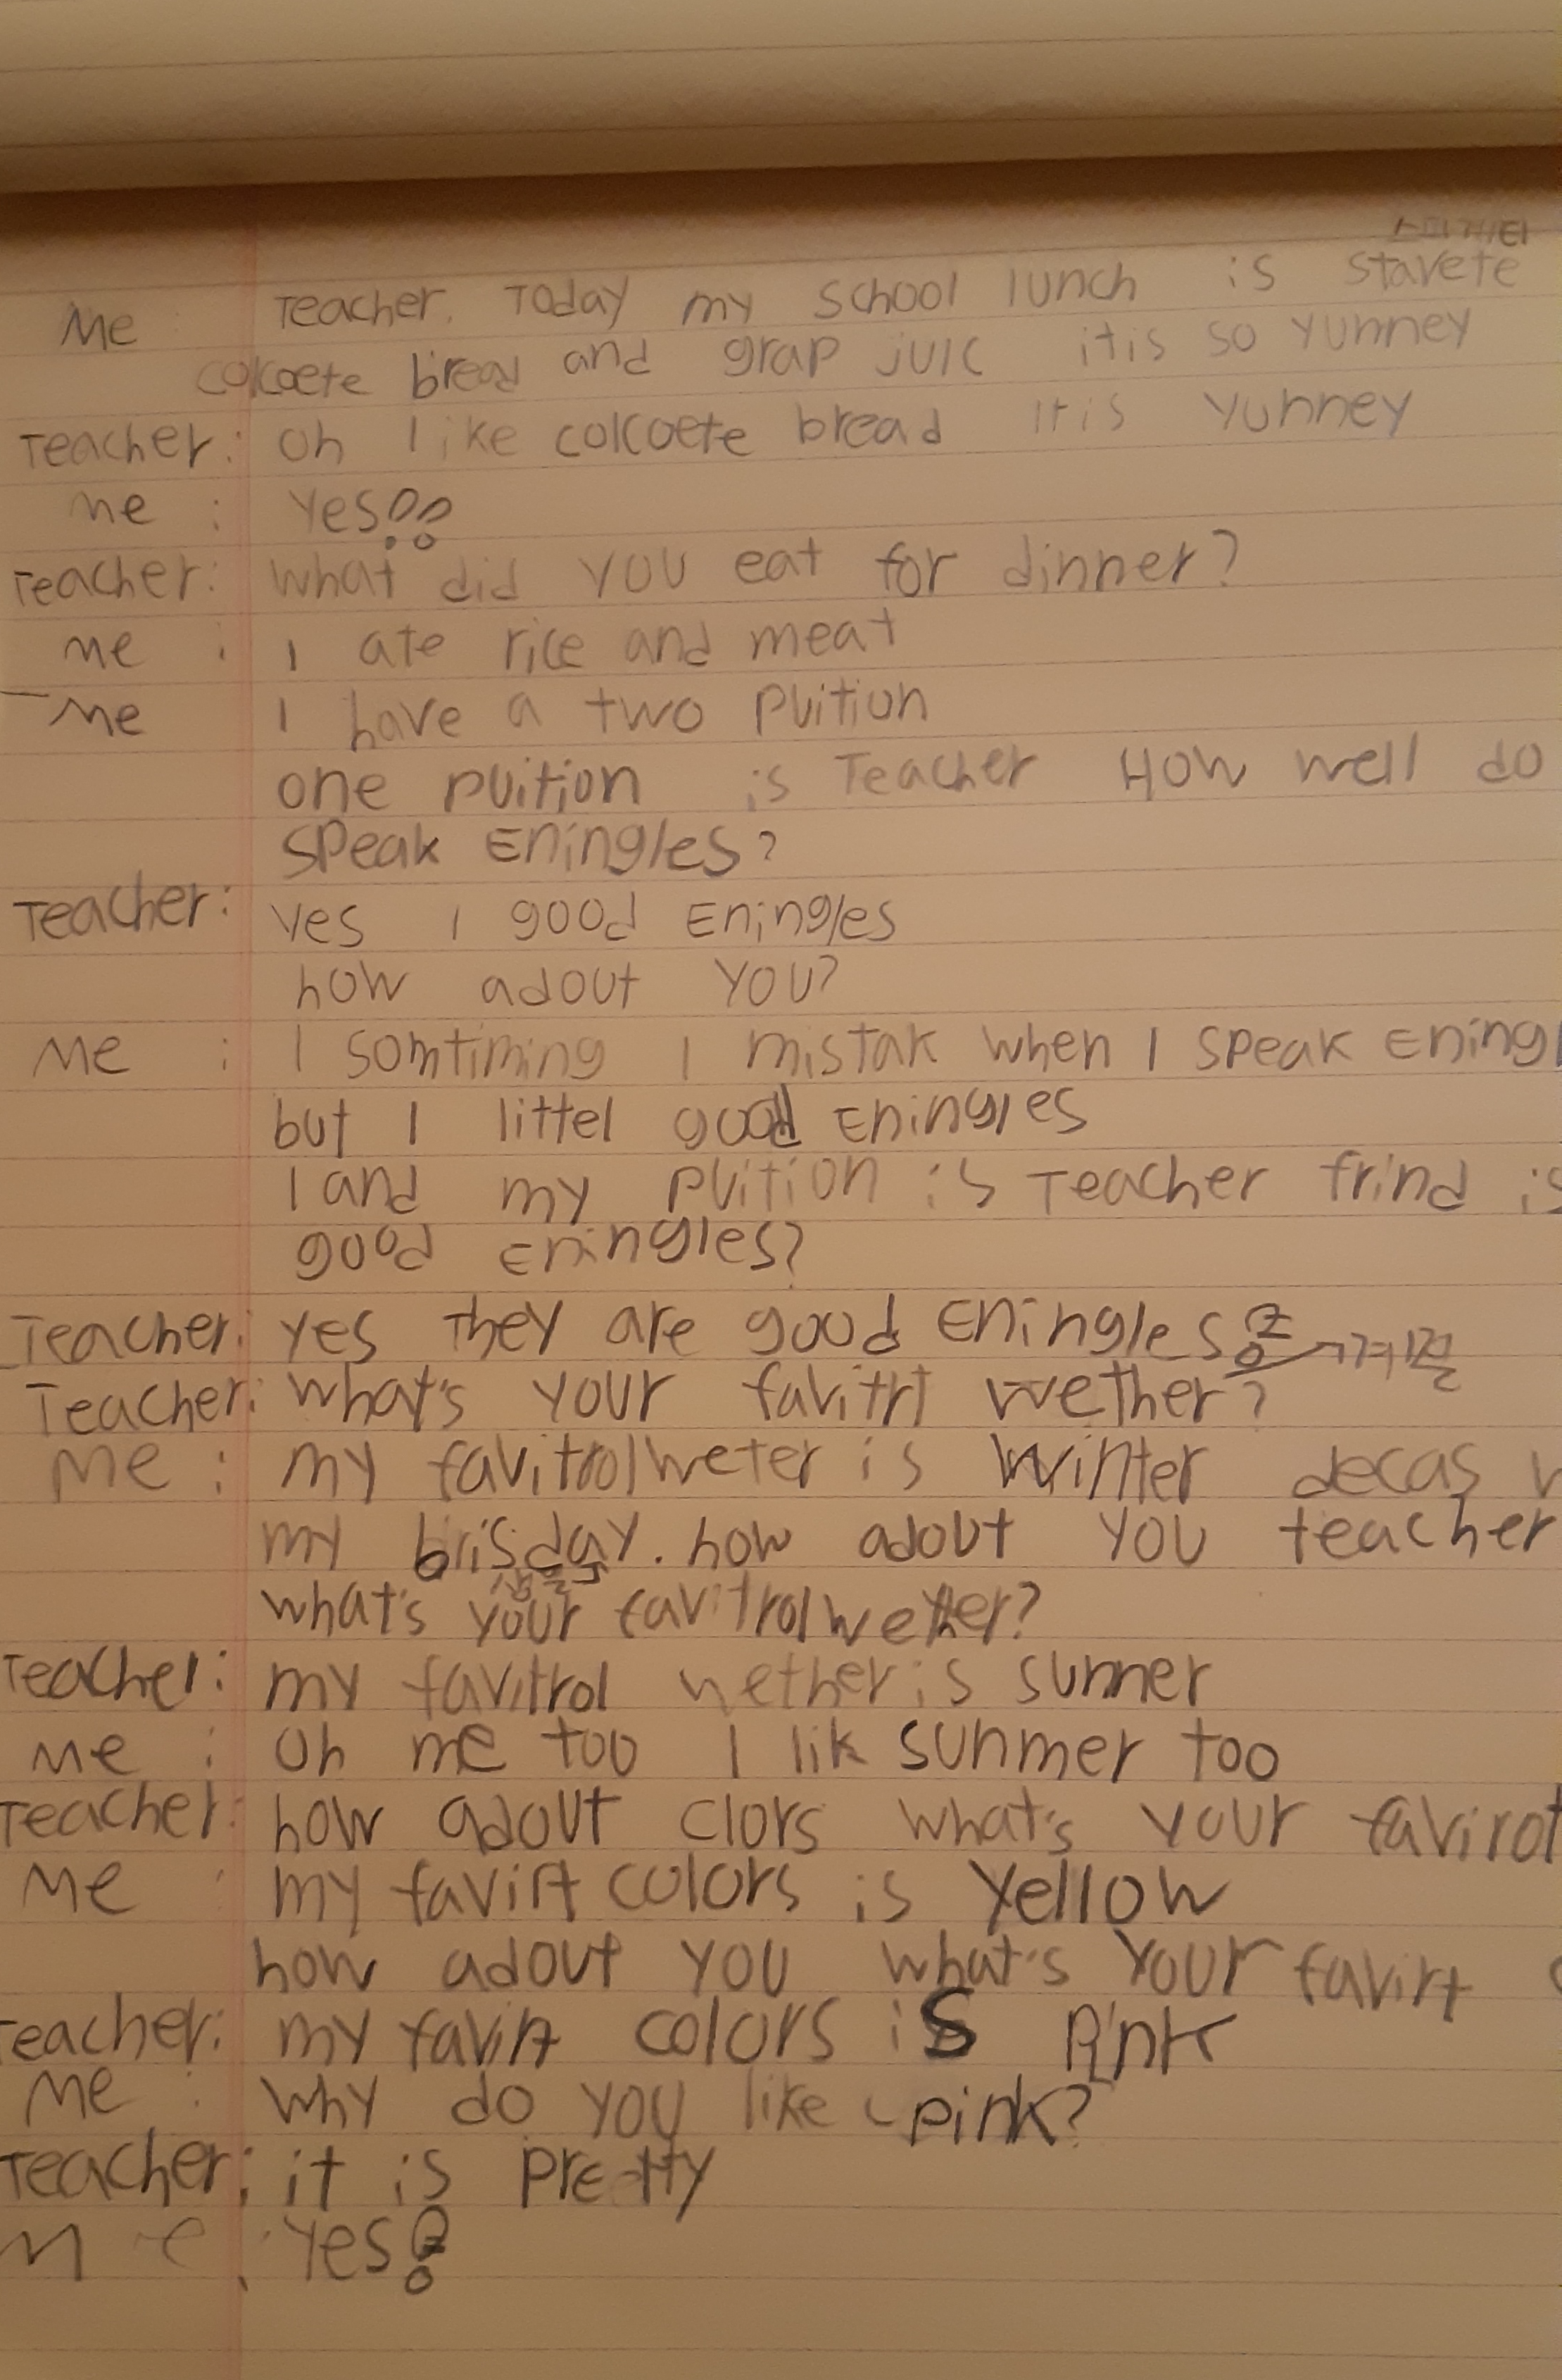 스파게티
Me Teacher. Today my school lunch is stavete
colcoete bread and grap juic itis so yunney
Teacher: oh I like colcoete bread It is yunney
me : yes!!
Teacher: what did you eat for dinner?
me : I ate rice and meat
me I have a two puition
one puition is Teacher How well do
speak Eningles?
Teacher: yes I good Eningles
how adout you?
Me : I somtiming I mistak when I speak Eningl
but I littel good Eningles
I and my puition is Teacher frind is
good Eningles?
Teacher: yes They are good Eningles!
Teacher: what's your favitrt wether?
Me : my favitrol weter is winter decas
my brisday. how adout you teacher
생일
what's your favitrol wether?
Teacher: my favitrol wether is sumner
Me : Oh me too I lik sunmer too
Teacher: how adout clors what's your favirot
Me : my favirt colors is yellow
how adout you what's your favirt
eacher: my favirt colors is Pink
Me : why do you like pink?
Teacher: it is pretty
Me : yes!